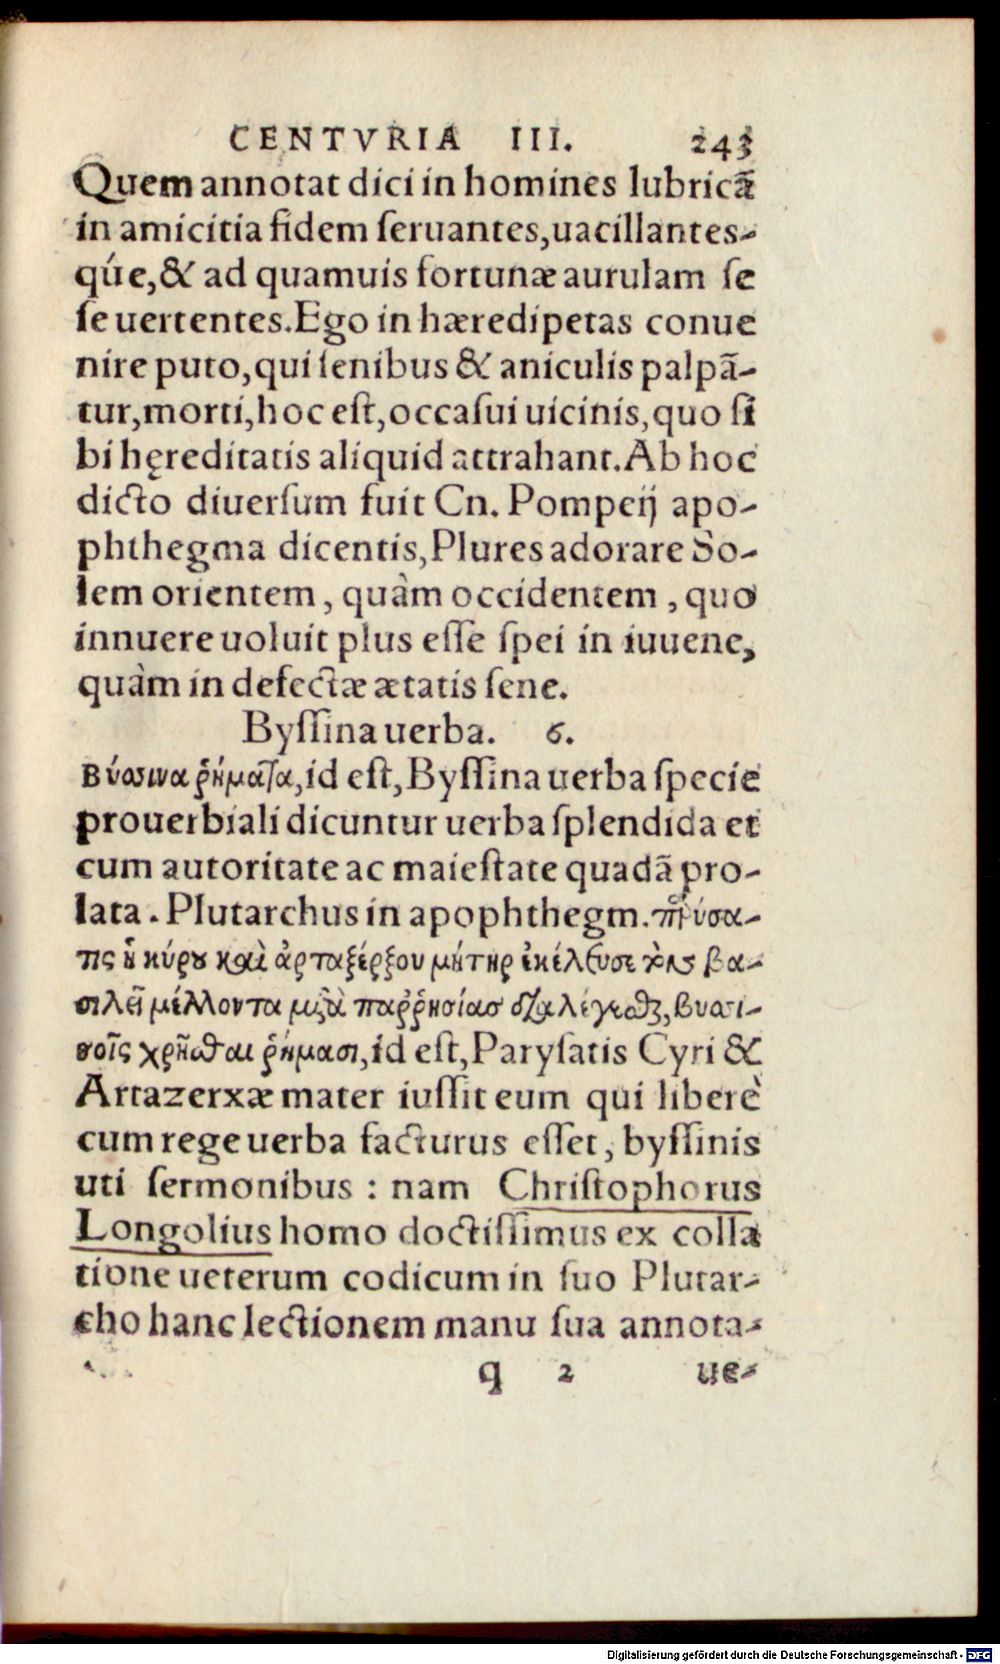 CENTVRIA III. 243
Quem annotat dici in homines lubricã
in amicitia fidem ſeruantes,uacillantes-
q́ue,& ad quamuis fortunæ aurulam ſe
ſe uertentes.Ego in hæredipetas conue
nire puto,qui ſenibus & aniculis palpã-
tur,morti,hoc eſt,occaſui uicinis,quo ſi
bi hęreditatis aliquid attrahant.Ab hoc
dicto diuerſum fuit Cn. Pompeij apo-
phthegma dicentis,Plures adorare So-
lem orientem , quàm occidentem , quo
innuere uoluit plus eſſe ſpei in iuuene,
quàm in defectæ ætatis ſene.
Byſſina uerba. 6.
Βύσσινα ῥήματα,id eſt,Byſſina uerba ſpecie
prouerbiali dicuntur uerba ſplendida et
cum autoritate ac maieſtate quadã pro-
lata . Plutarchus in apophthegm. παρύσα-
τις ἡ κύρου καὶ ἀρταξέρξου μήτηρ ἐκέλευσε τοῖς βα-
σιλεῖ μέλλοντα μετὰ παῤῥησίας διαλέγεσθαι, βυσσί-
νοῖς χρῆσθαι ῥήμασι,id eſt,Paryſatis Cyri &
Artazerxæ mater iuſſit eum qui liberè
cum rege uerba facturus eſſet, byſſinis
uti ſermonibus : nam Chriſtophorus
Longolius homo doctiſſimus ex colla
tione ueterum codicum in ſuo Plutar-
cho hanc lectionem manu ſua annota-
q 2 ue-
Digitalisierung gefördert durch die Deutsche Forschungsgemeinschaft - DFG